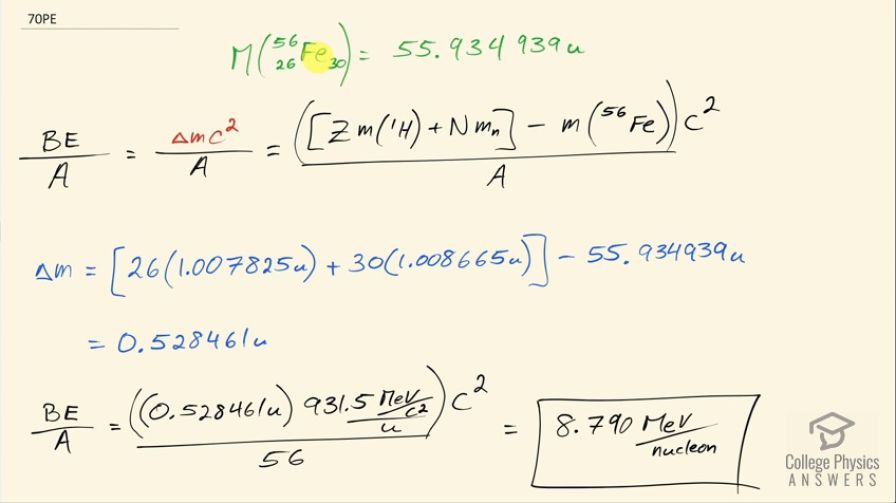 70PE
M(⁵⁶₂₆Fe₃₀) = 55.934 939u
BE/A = Δmc²/A = ([Zm(¹H) + Nmₙ] − m(⁵⁶Fe))c²/A
Δm = [26(1.007825u) + 30(1.008665u)] − 55.934939u
= 0.528461u
BE/A = ((0.528461u) 931.5 MeV/c²/u)c²/56 = 8.790 MeV/nucleon
College Physics
ANSWERS